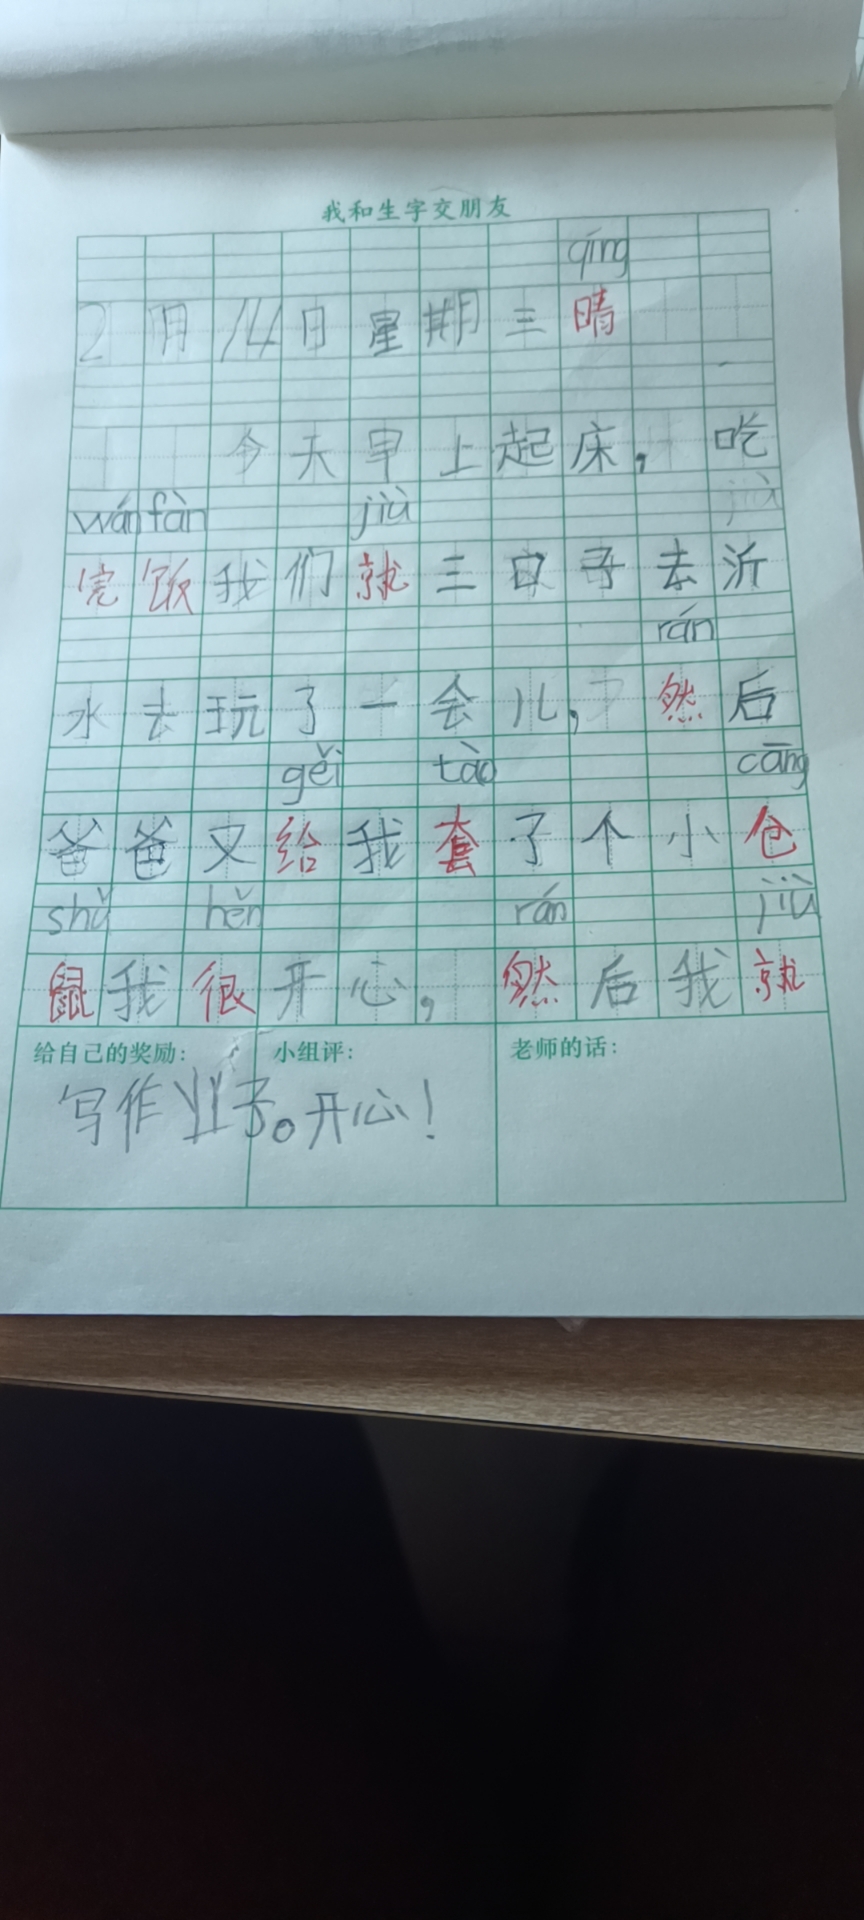 我和生字交朋友
qíng
2月14日星期三晴
今天早上起床，吃
wán fàn jiù jiù
完饭我们就三口子去沂
rán
水去玩了一会儿，然后
gěi tào cāng
爸爸又给我套了个小仓
shǔ hěn rán jiù
鼠我很开心，然后我就
给自己的奖励： 小组评： 老师的话：
写作业了。开心！